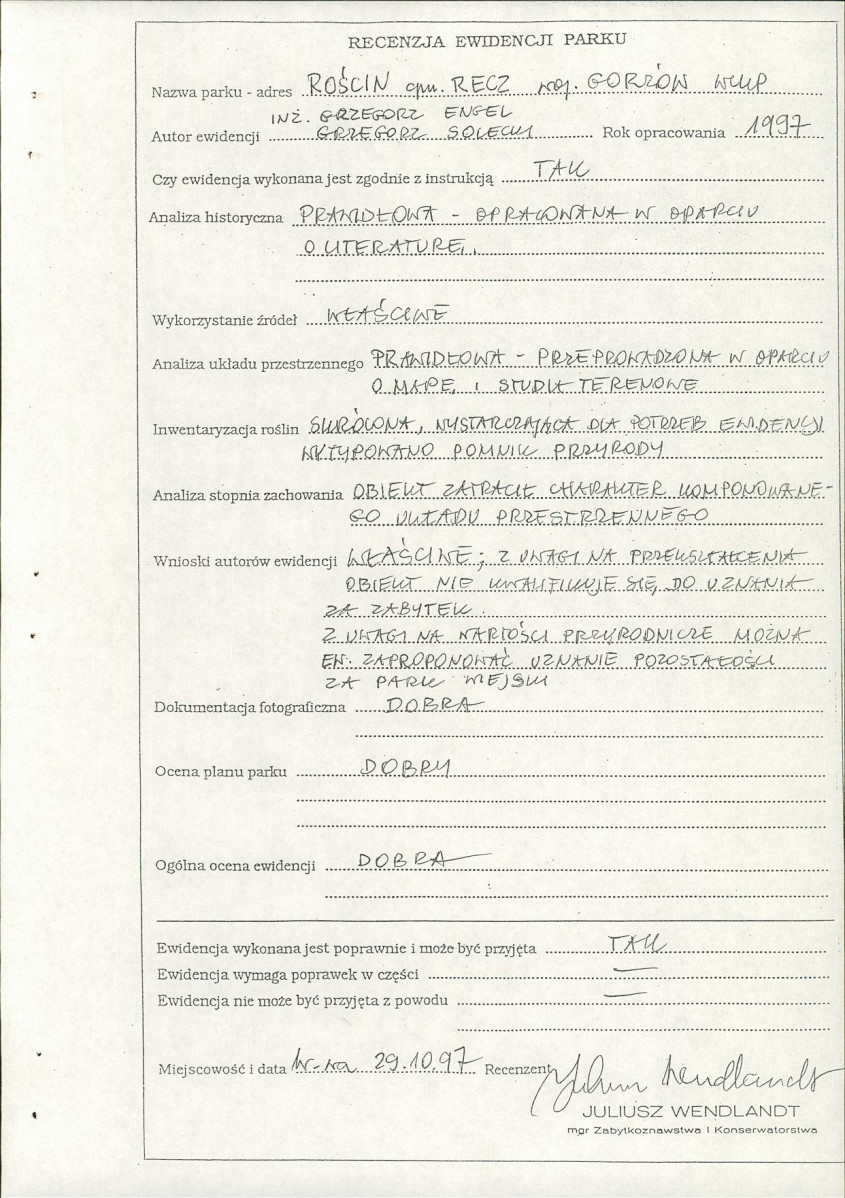 RECENZJA EWIDENCJI PARKU
Nazwa parku - adres ROŚCIN gm. RECZ woj. GORZÓW WLKP
INŻ. GRZEGORZ ENGEL
Autor ewidencji GRZEGORZ SOLECKI Rok opracowania 1997
Czy ewidencja wykonana jest zgodnie z instrukcją TAK
Analiza historyczna PRAWIDŁOWA - OPRACOWANA W OPARCIU
O LITERATURĘ.
Wykorzystanie źródeł WŁAŚCIWE
Analiza układu przestrzennego PRAWIDŁOWA - PRZEPROWADZONA W OPARCIU
O MAPĘ I STUDIA TERENOWE
Inwentaryzacja roślin SKRÓCONA, WYSTARCZAJĄCA DLA POTRZEB EWIDENCJI
WYTYPOWANO POMNIK PRZYRODY
Analiza stopnia zachowania OBIEKT ZATRACIŁ CHARAKTER KOMPONOWANE-
GO UKŁADU PRZESTRZENNEGO
Wnioski autorów ewidencji WŁAŚCIWE; Z UWAGI NA PRZEKSZTAŁCENIA
OBIEKT NIE KWALIFIKUJE SIĘ DO UZNANIA
ZA ZABYTEK.
Z UWAGI NA WARTOŚCI PRZYRODNICZE MOŻNA
EW. ZAPROPONOWAĆ UZNANIE POZOSTAŁOŚCI
ZA PARK WIEJSKI
Dokumentacja fotograficzna DOBRA
Ocena planu parku DOBRY
Ogólna ocena ewidencji DOBRA
Ewidencja wykonana jest poprawnie i może być przyjęta TAK
Ewidencja wymaga poprawek w części —
Ewidencja nie może być przyjęta z powodu —
Miejscowość i data W-wa 29.10.97 Recenzent Juliusz Wendlandt
JULIUSZ WENDLANDT
mgr Zabytkoznawstwa i Konserwatorstwa